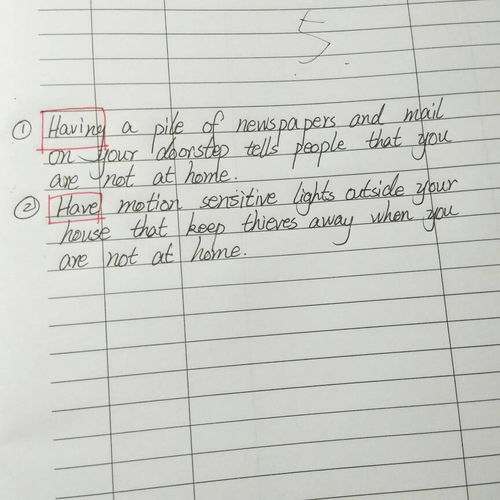 5
① Having a pile of newspapers and mail
on your doorstep tells people that you
are not at home.
② Have motion sensitive lights outside your
house that keep thieves away when you
are not at home.